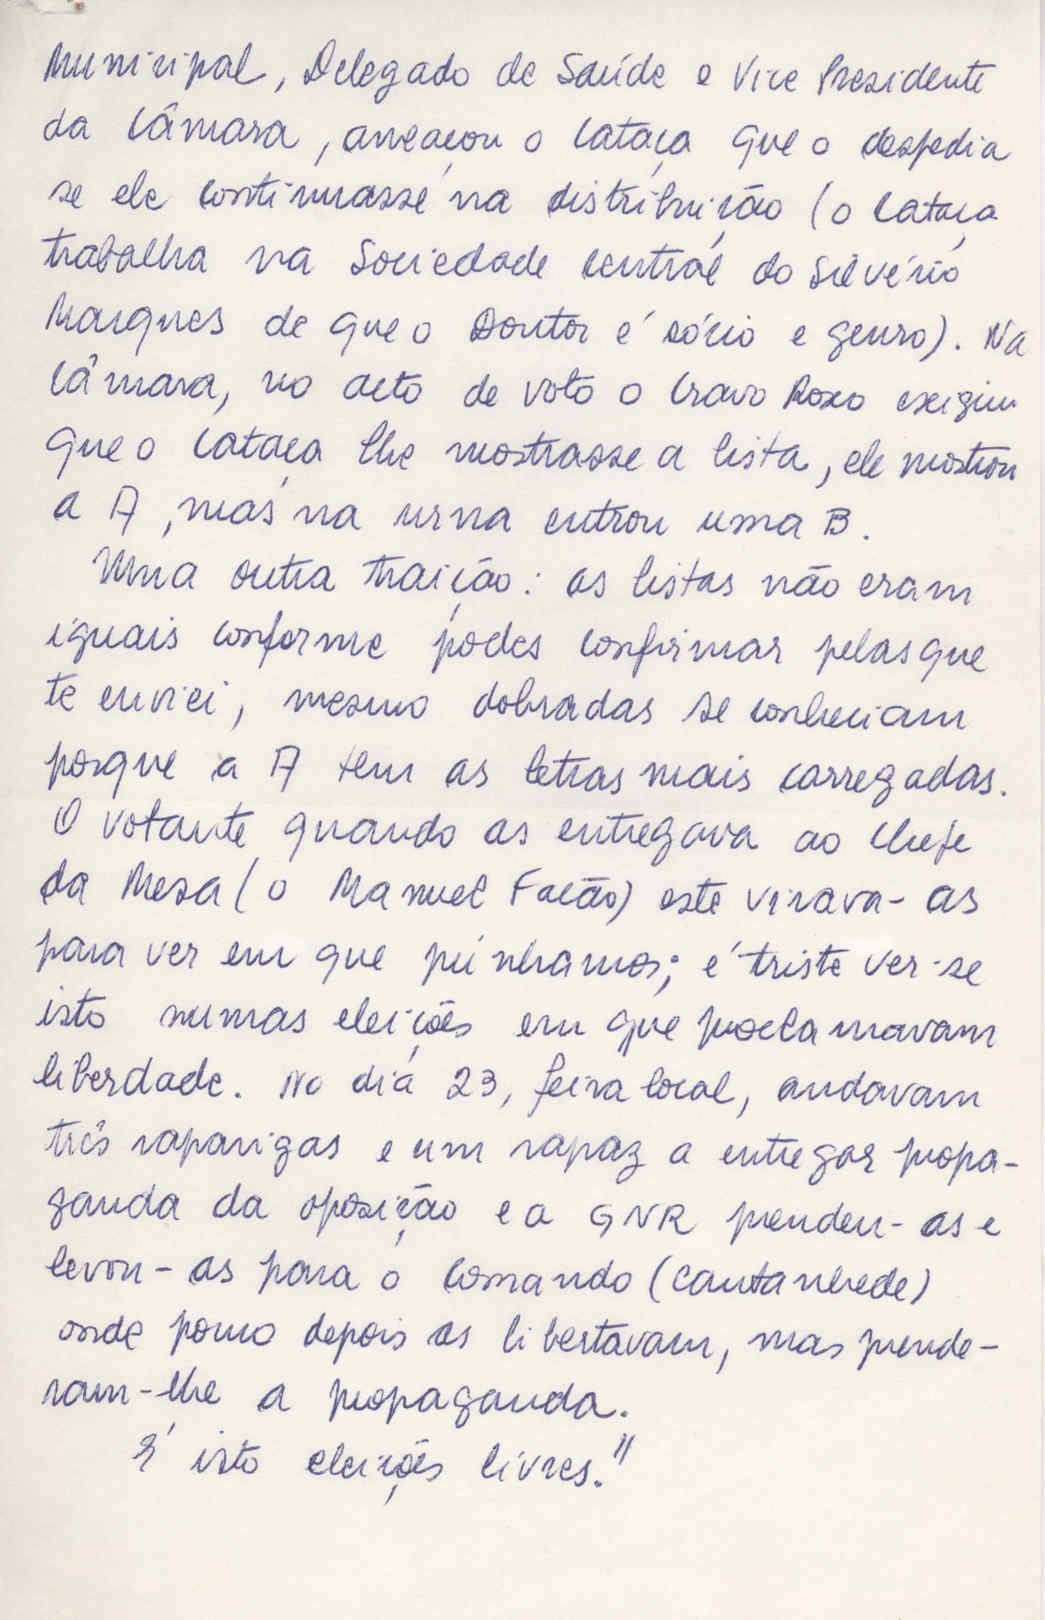 Municipal, Delegado de Saúde e Vice Presidente
da Câmara, ameaçou o Cataça que o despedia
se ele continuasse na distribuição (o Cataça
trabalha na Sociedade Central do Silvério
Marques de que o Doutor é sócio e genro). Na
Câmara, no acto de voto o Cravo Roxo exigiu
que o Cataça lhe mostrasse a lista, ele mostrou
a A, mas na urna entrou uma B.
Uma outra traição: as listas não eram
iguais conforme podes confirmar pelas que
te enviei, mesmo dobradas se conheciam
porque a A tem as letras mais carregadas.
O votante quando as entregava ao Chefe
da Mesa (o Manuel Facão) este virava-as
para ver em que púnhamos; é triste ver-se
isto numas eleições em que proclamavam
liberdade. No dia 23, feira local, andavam
três raparigas e um rapaz a entregar propa-
ganda da oposição e a GNR prendeu-as e
levou-as para o comando (Cantanhede)
onde pouco depois as libertavam, mas prende-
ram-lhe a propaganda.
É isto eleições livres."